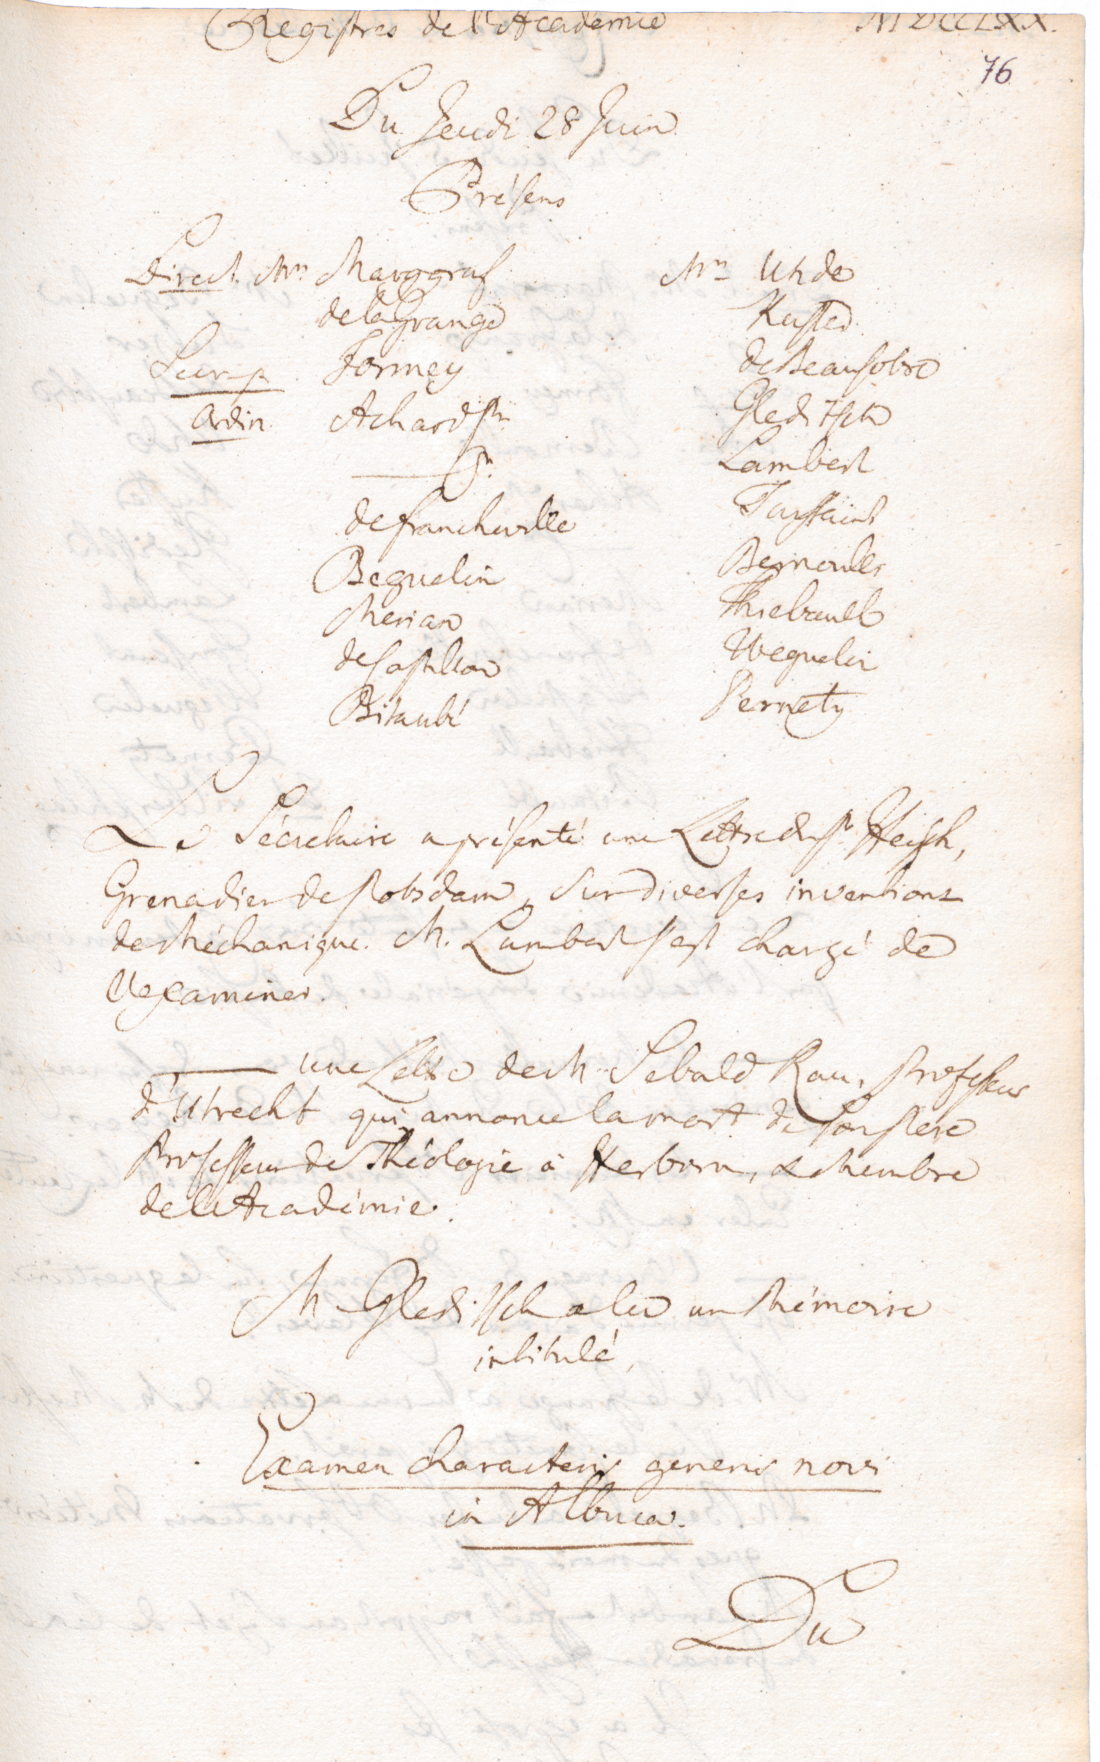 Registres de l'Academie MDCCLXX.
76
Du Jeudi 28 Juin
Présens
Direct. Mrs Marggraf
de la Grange
Secr. p. Formey
Ordin. Achard sen.
——— jn.
de Francheville
Beguelin
Merian
de Castillon
Bitaubé
Mrs Uhde
Kuster
de Beausobre
Gleditsch
Lambert
Toussaint
Bernoulli
Thiebault
Weguelin
Pernety
Le Sécretaire a présenté une Lettre du Sr
Grenadier de Potsdam, sur diverses inventions
de Méchanique. M. Lambert s'est chargé de
l'examiner.
——— une Lettre de M. Sebald Rau, Professeur
d'Utrecht qui annonce la mort de son Pere
Professeur de Théologie à Herborn, & Membre
de l'Académie.
M. Gleditsch a lu un Mémoire
intitulé,
Examen characteris generis novi
in Albuca.
Du